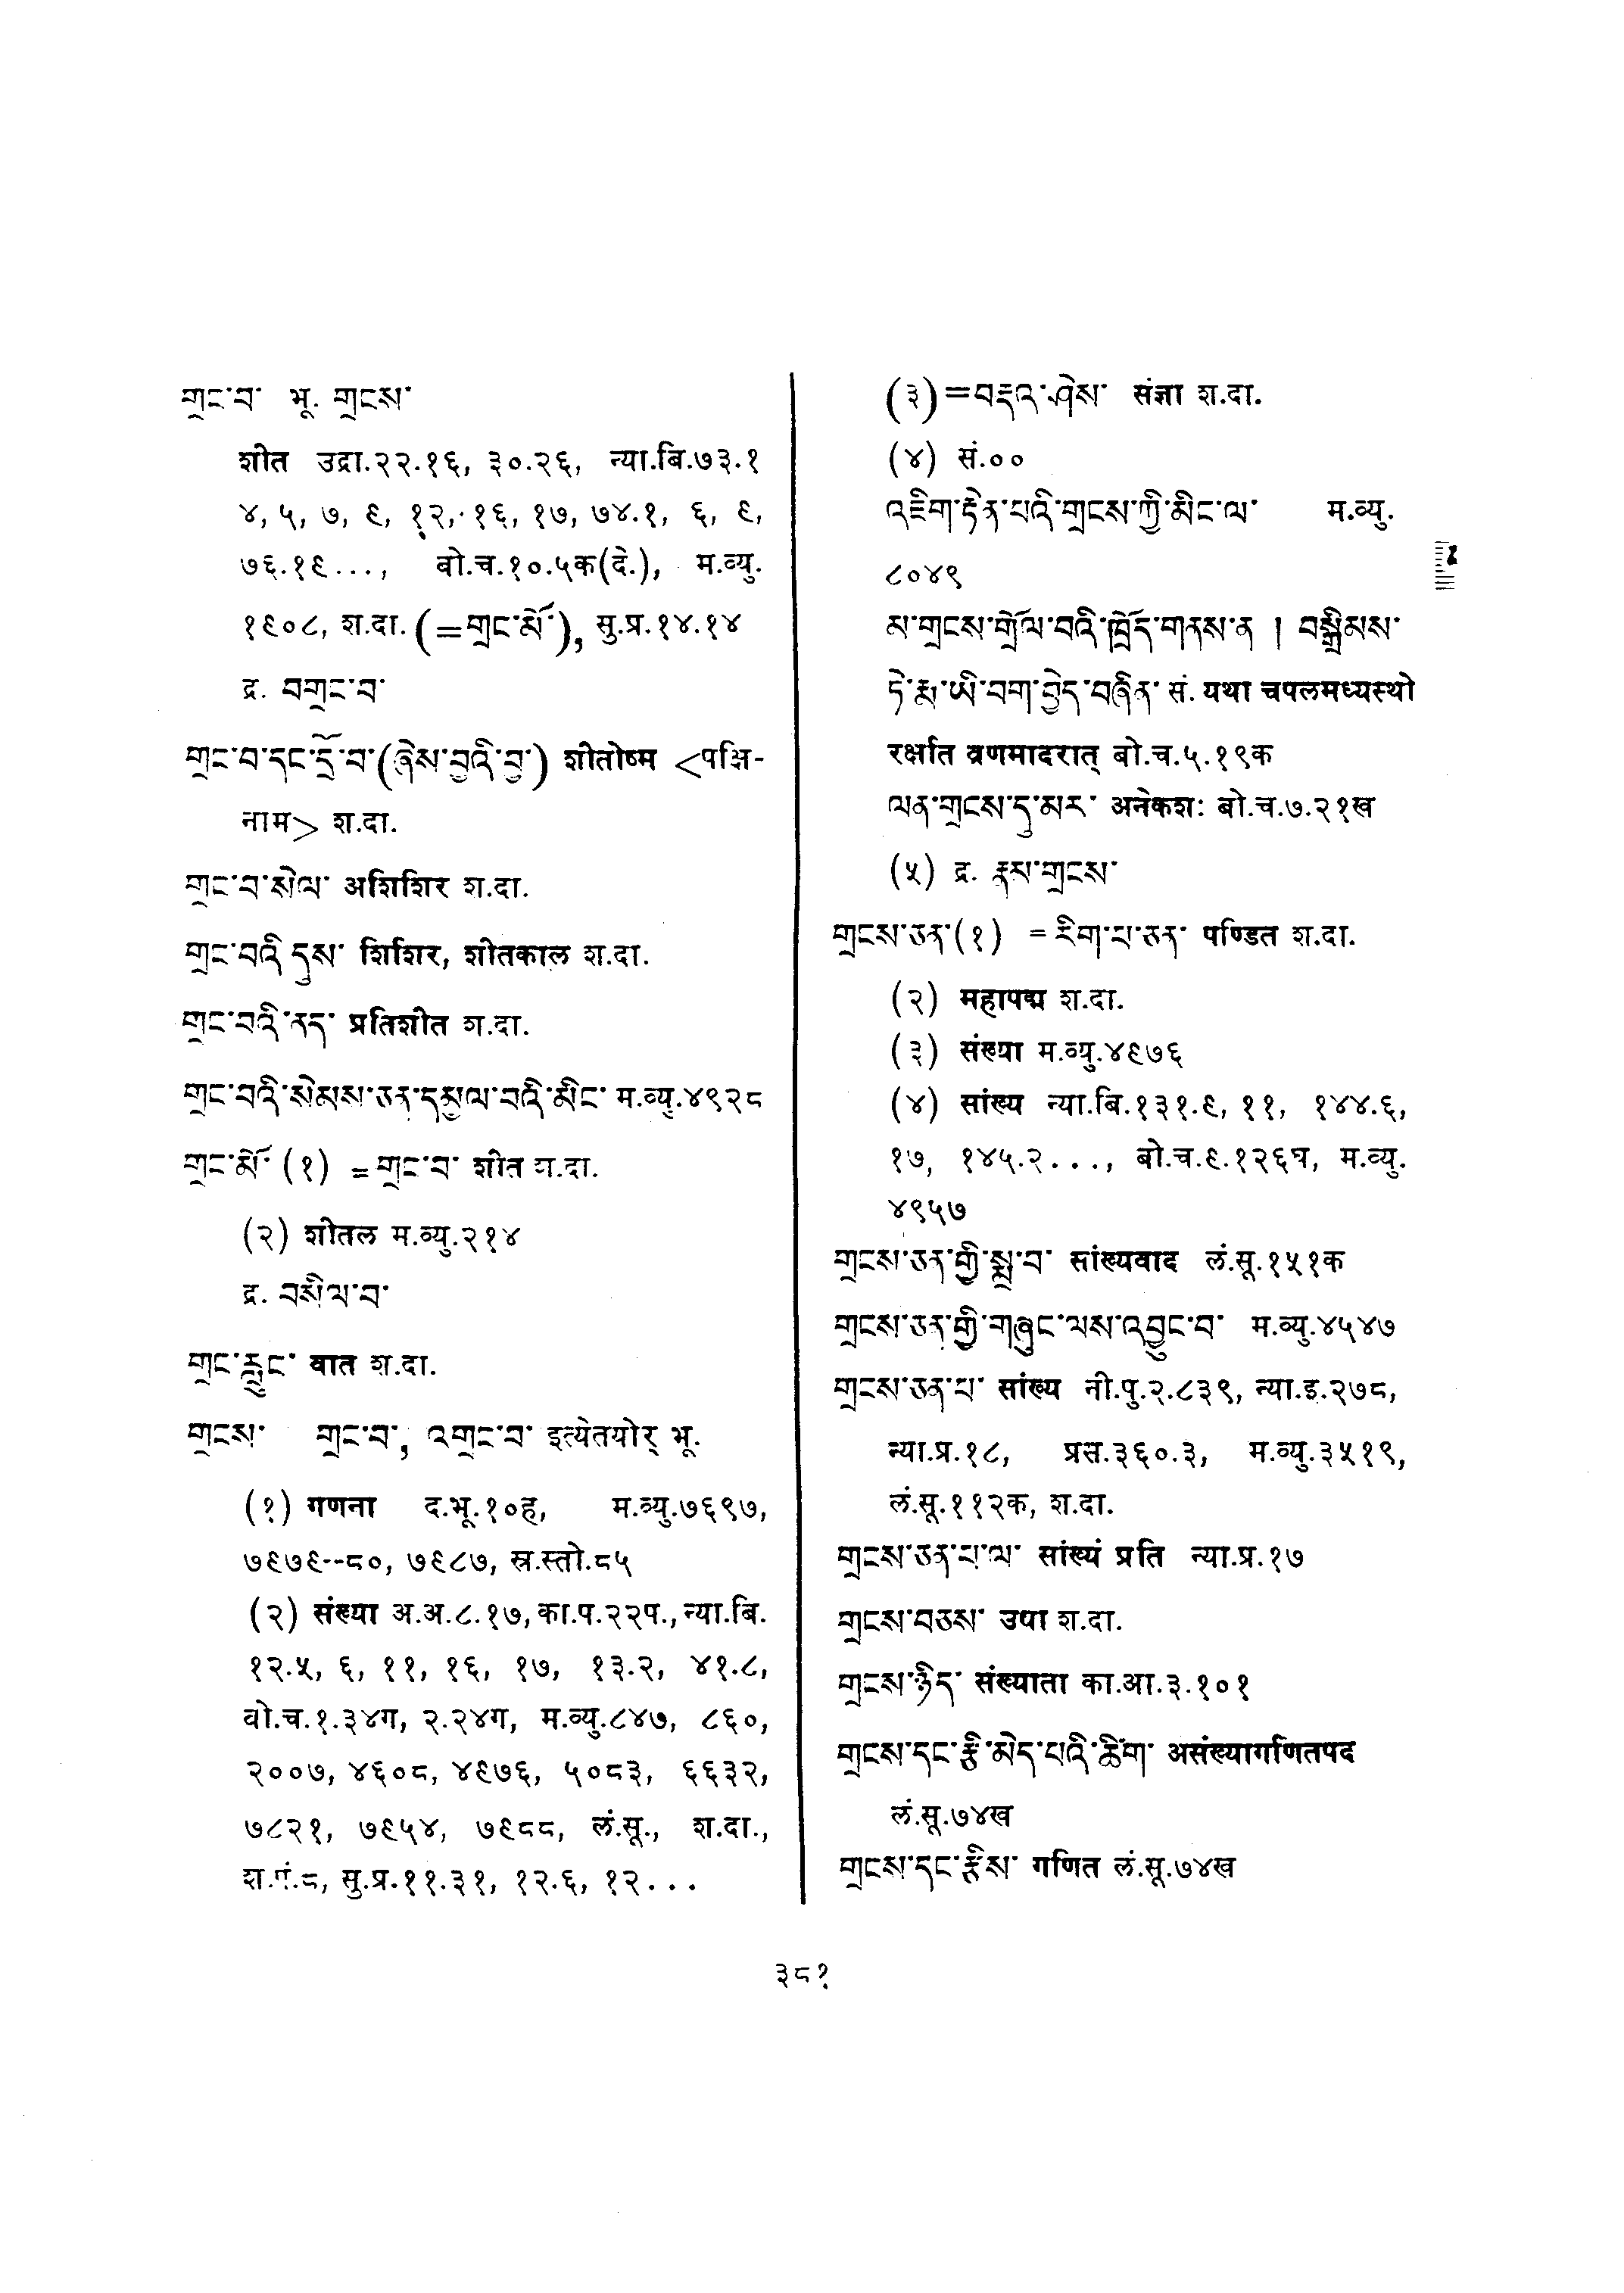 གྲང་བ་ भू. གྲངས་
शीत उद्रा.२२.१६, ३०.२६, न्या.बि.७३.१
४, ५, ७, ९, १२, १६, १७, ७४.१, ६, ९,
७६.१९..., बो.च.१०.५क(दे.), म.व्यु.
१९०८, श.दा. (=གྲང་མོ་), सु.प्र.१४.१४
द्र. བགྲང་བ་
གྲང་བ་དང་དྲོ་བ་(ཞེས་བྱའི་བྱ་) शीतोष्म <पक्षि-
नाम> श.दा.
གྲང་བ་སེལ་ अशिशिर श.दा.
གྲང་བའི་དུས་ शिशिर, शीतकाल श.दा.
གྲང་བའི་ནད་ प्रतिशीत श.दा.
གྲང་བའི་སེམས་ཅན་དམྱལ་བའི་མིང་ म.व्यु.४९२८
གྲང་མོ་ (१) =གྲང་བ་ शीत श.दा.
(२) शीतल म.व्यु.२१४
द्र. བསིལ་བ་
གྲང་རླུང་ वात श.दा.
གྲངས་ གྲང་བ་, འགྲང་བ་ इत्येतयोर् भू.
(१) गणना द.भू.१०ह, म.व्यु.७६९७,
७९७९--८०, ७९८७, स्र.स्तो.८५
(२) संख्या अ.अ.८.१७, का.प.२२प., न्या.बि.
१२.५, ६, ११, १६, १७, १३.२, ४१.८,
बो.च.१.३४ग, २.२४ग, म.व्यु.८४७, ८६०,
२००७, ४६०८, ४९७६, ५०८३, ६६३२,
७८२१, ७९५४, ७९८८, लं.सू., श.दा.,
श.गं.८, सु.प्र.११.३१, १२.६, १२...
(३)=བརྡའ་ཤེས་ संज्ञा श.दा.
(४) सं.००
འཇིག་རྟེན་པའི་གྲངས་ཀྱི་མིང་ལ་ म.व्यु.
८०४९
མ་གྲངས་གྲོལ་བའི་ཁྲོད་གནས་ན ། བསྒྲིམས་
ཏེ་རྨ་ཡི་བག་བྱེད་བཞིན་ सं. यथा चपलमध्यस्थो
रक्षति व्रणमादरात् बो.च.५.१९क
ལན་གྲངས་དུ་མར་ अनेकशः बो.च.७.२१ख
(५) द्र. རྣམ་གྲངས་
གྲངས་ཅན་(१) =རིག་པ་ཅན་ पण्डित श.दा.
(२) महापद्म श.दा.
(३) संख्या म.व्यु.४९७६
(४) सांख्य न्या.बि.१३१.९, ११, १४४.६,
१७, १४५.२..., बो.च.९.१२६घ, म.व्यु.
४९५७
གྲངས་ཅན་གྱི་སྨྲ་བ་ सांख्यवाद लं.सू.१५१क
གྲངས་ཅན་གྱི་གཞུང་ལས་འབྱུང་བ་ म.व्यु.४५४७
གྲངས་ཅན་པ་ सांख्य नी.पु.२.८३९, न्या.इ.२७८,
न्या.प्र.१८, प्रस.३६०.३, म.व्यु.३५१९,
लं.सू.११२क, श.दा.
གྲངས་ཅན་པ་ལ་ सांख्यं प्रति न्या.प्र.१७
གྲངས་བཅས་ उपा श.दा.
གྲངས་ཉིད་ संख्याता का.आ.३.१०१
གྲངས་དང་རྩི་མེད་པའི་ཚིག་ असंख्यागणितपद
लं.सू.७४ख
གྲངས་དང་རྩིས་ गणित लं.सू.७४ख
३८१